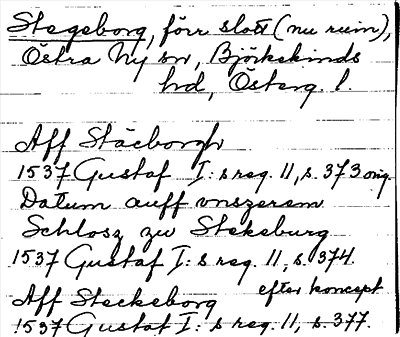 Stegeborg, förr slott (nu ruin),
Östra Ny sn, Björkekinds
hd, Österg. l.
Aff Stäeborgh
1537 Gustaf I:s reg. 11, s. 373 orig.
Datum auff vnszerem
Schlosz zu Stekeburg
1537 Gustaf I:s reg. 11, s. 374.
efter koncept
Aff Steckeborg
1537 Gustaf I:s reg. 11, s. 377.